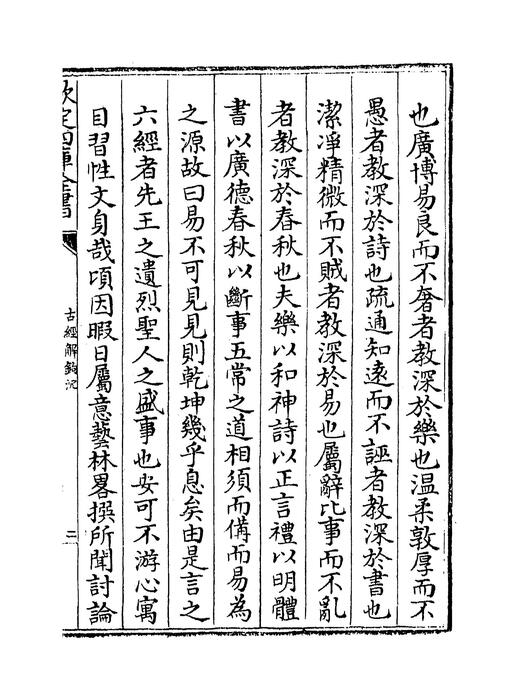 也廣博易良而不奢者教深於樂也温柔敦厚而不
愚者教深於詩也疏通知逺而不誣者教深於書也
潔凈精微而不賊者教深於易也屬辭比事而不亂
者教深於春秋也夫樂以和神詩以正言禮以明體
書以廣德春秋以斷事五常之道相須而備而易為
之源故曰易不可見見則乾坤幾乎息矣由是言之
六經者先王之遺烈聖人之盛事也安可不游心寓
目習性文身哉頃因暇日屬意藝林畧撰所聞討論
欽定四庫全書
古經解鉤沉
二